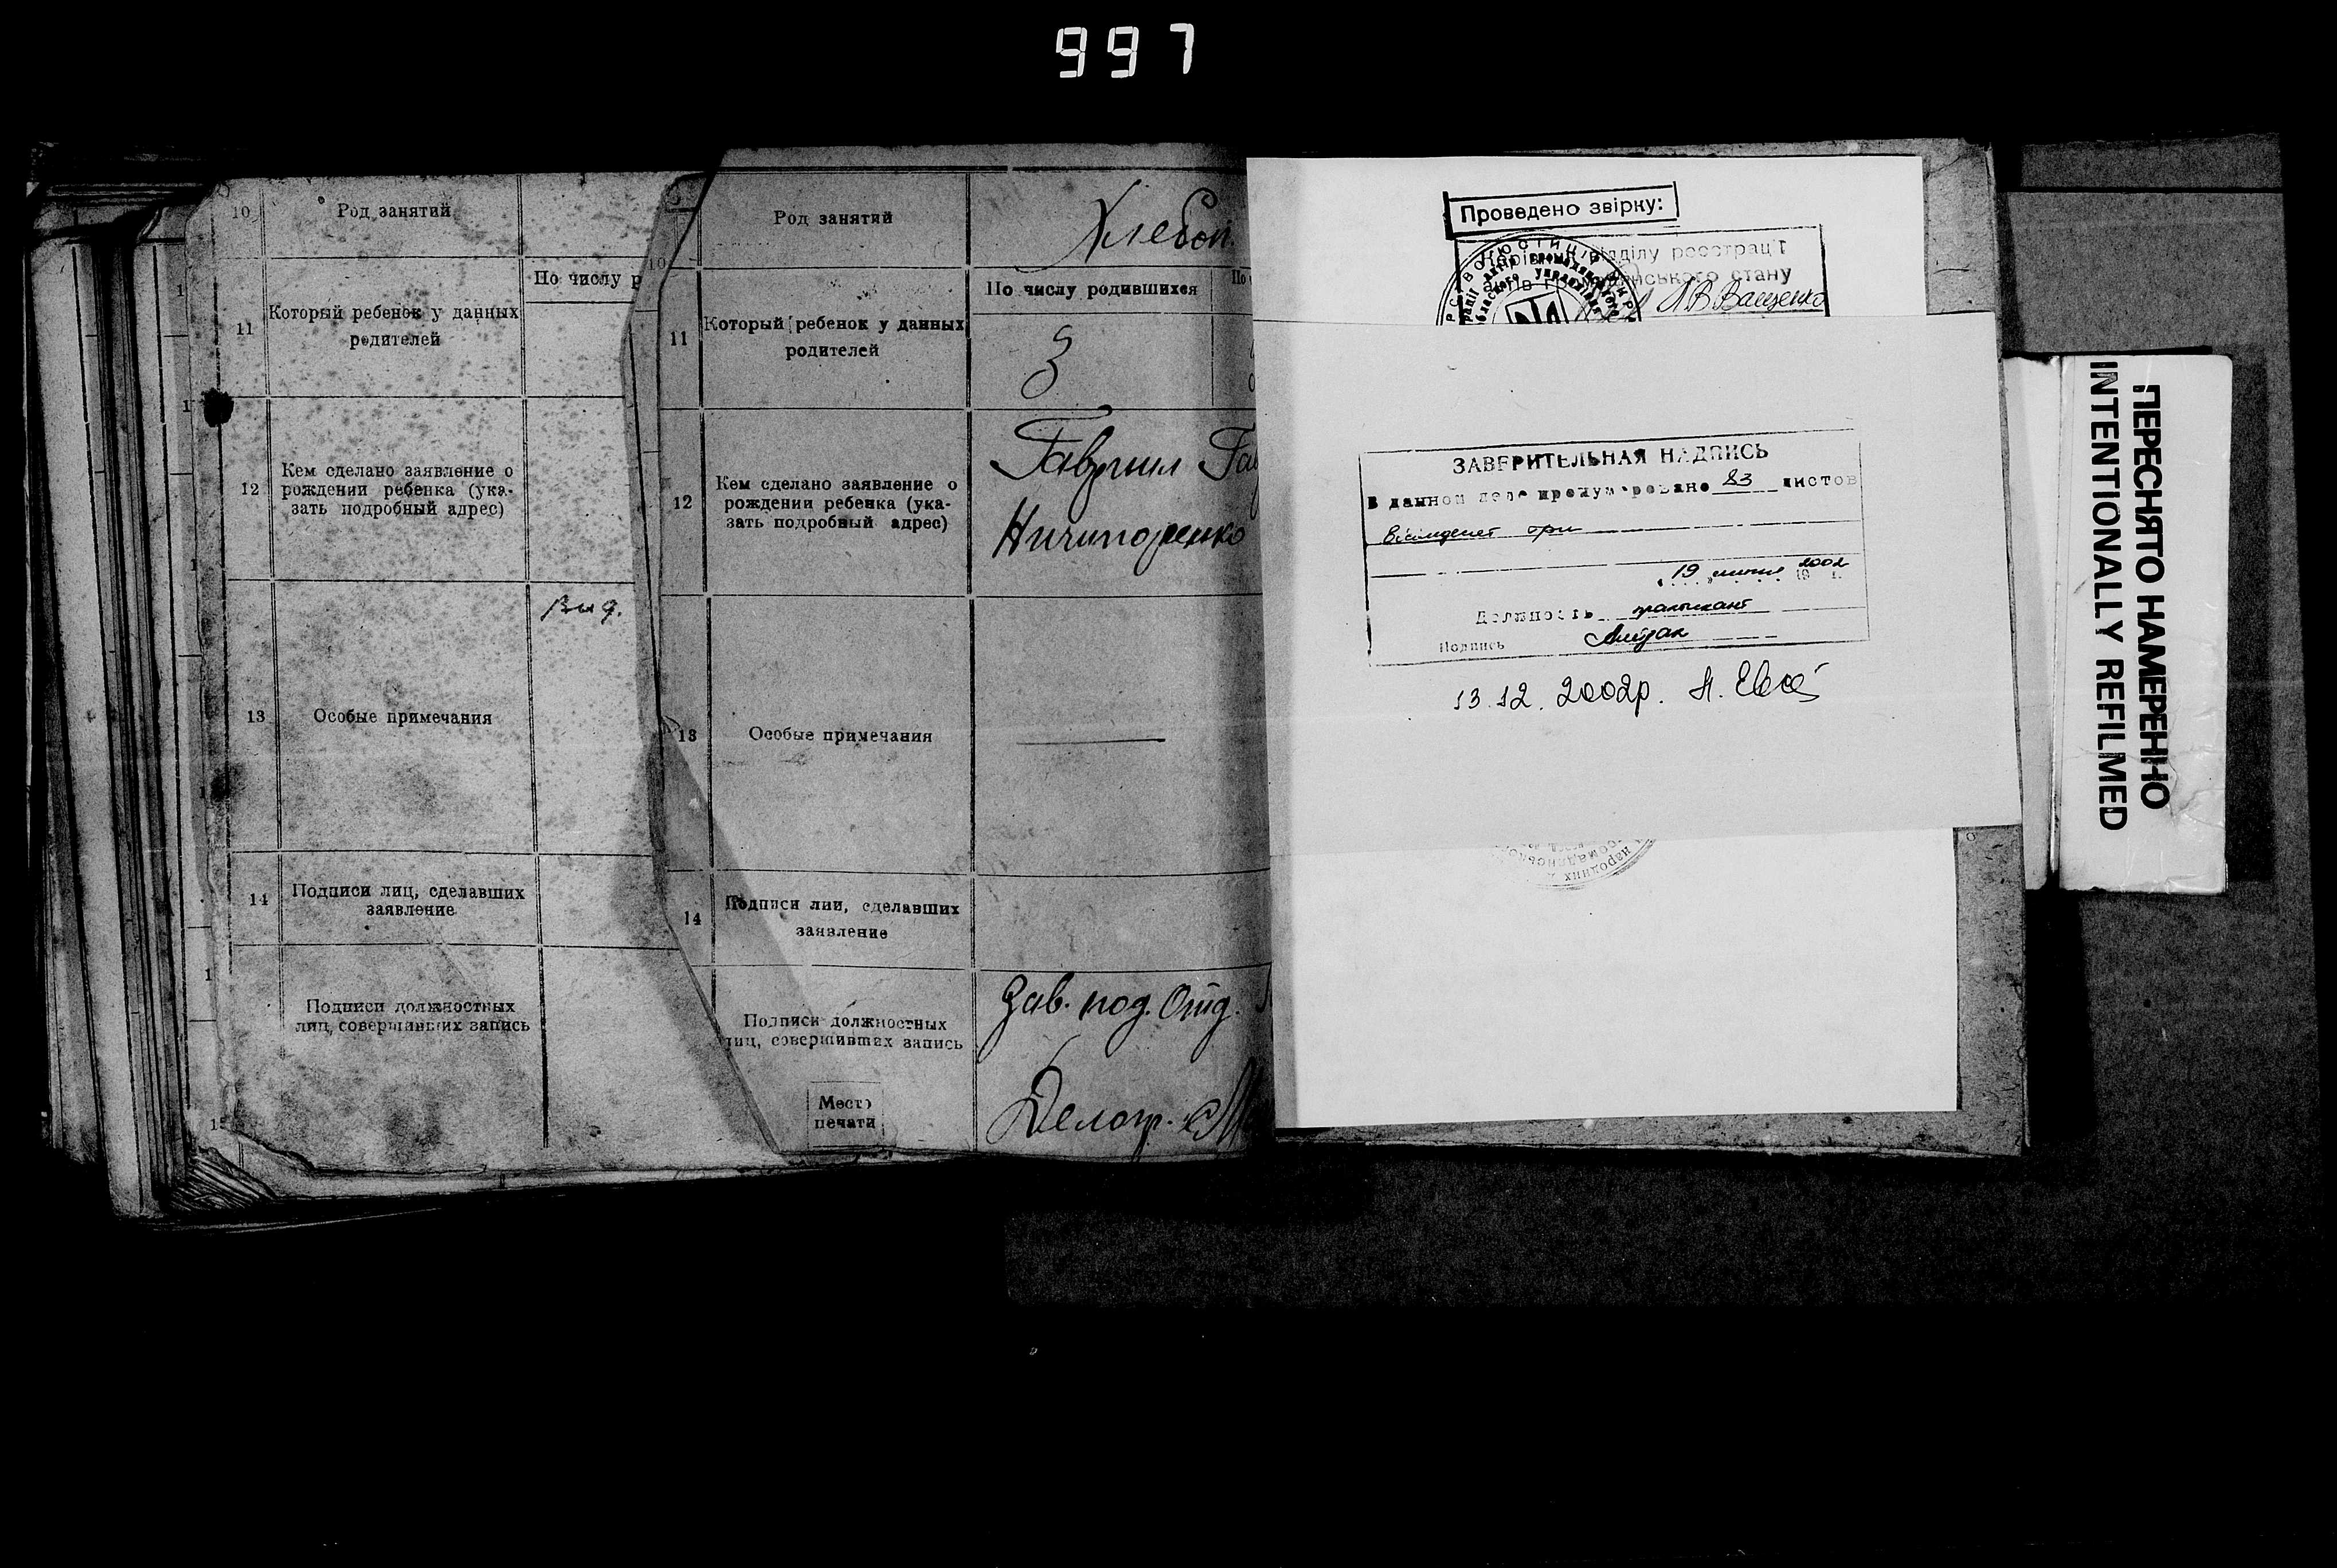 997
10 Род занятий
По числу р
11 Который ребенок у данных
родителей
12 Кем сделано заявление о
рождении ребенка (ука-
зать подробный адрес)
13 Особые примечания
14 Подписи лиц, сделавших
заявление
Подписи должностных
лиц, совершивших запись
10 Род занятий Хлебоп.
11 Который ребенок у данных
родителей
По числу родившихся
3
12 Кем сделано заявление о
рождении ребенка (ука-
зать подробный адрес)
Гавриил Гав
Ничипоренко
13 Особые примечания
14 Подписи лии, сделавших
заявление
Подписи должностных
лиц, совершивших запись
Зав. под. Отд.
Делопр.
Место
печати
Проведено звірку:
відділу реєстрації
стану
ЗАВЕРИТЕЛЬНАЯ НАДПИСЬ
В данном деле пронумеровано 83 листов
вісімдесят три
19 2002
Должность практикант
Подпись
13.12.2002р.
ПЕРЕСНЯТО НАМЕРЕННО
INTENTIONALLY REFILMED